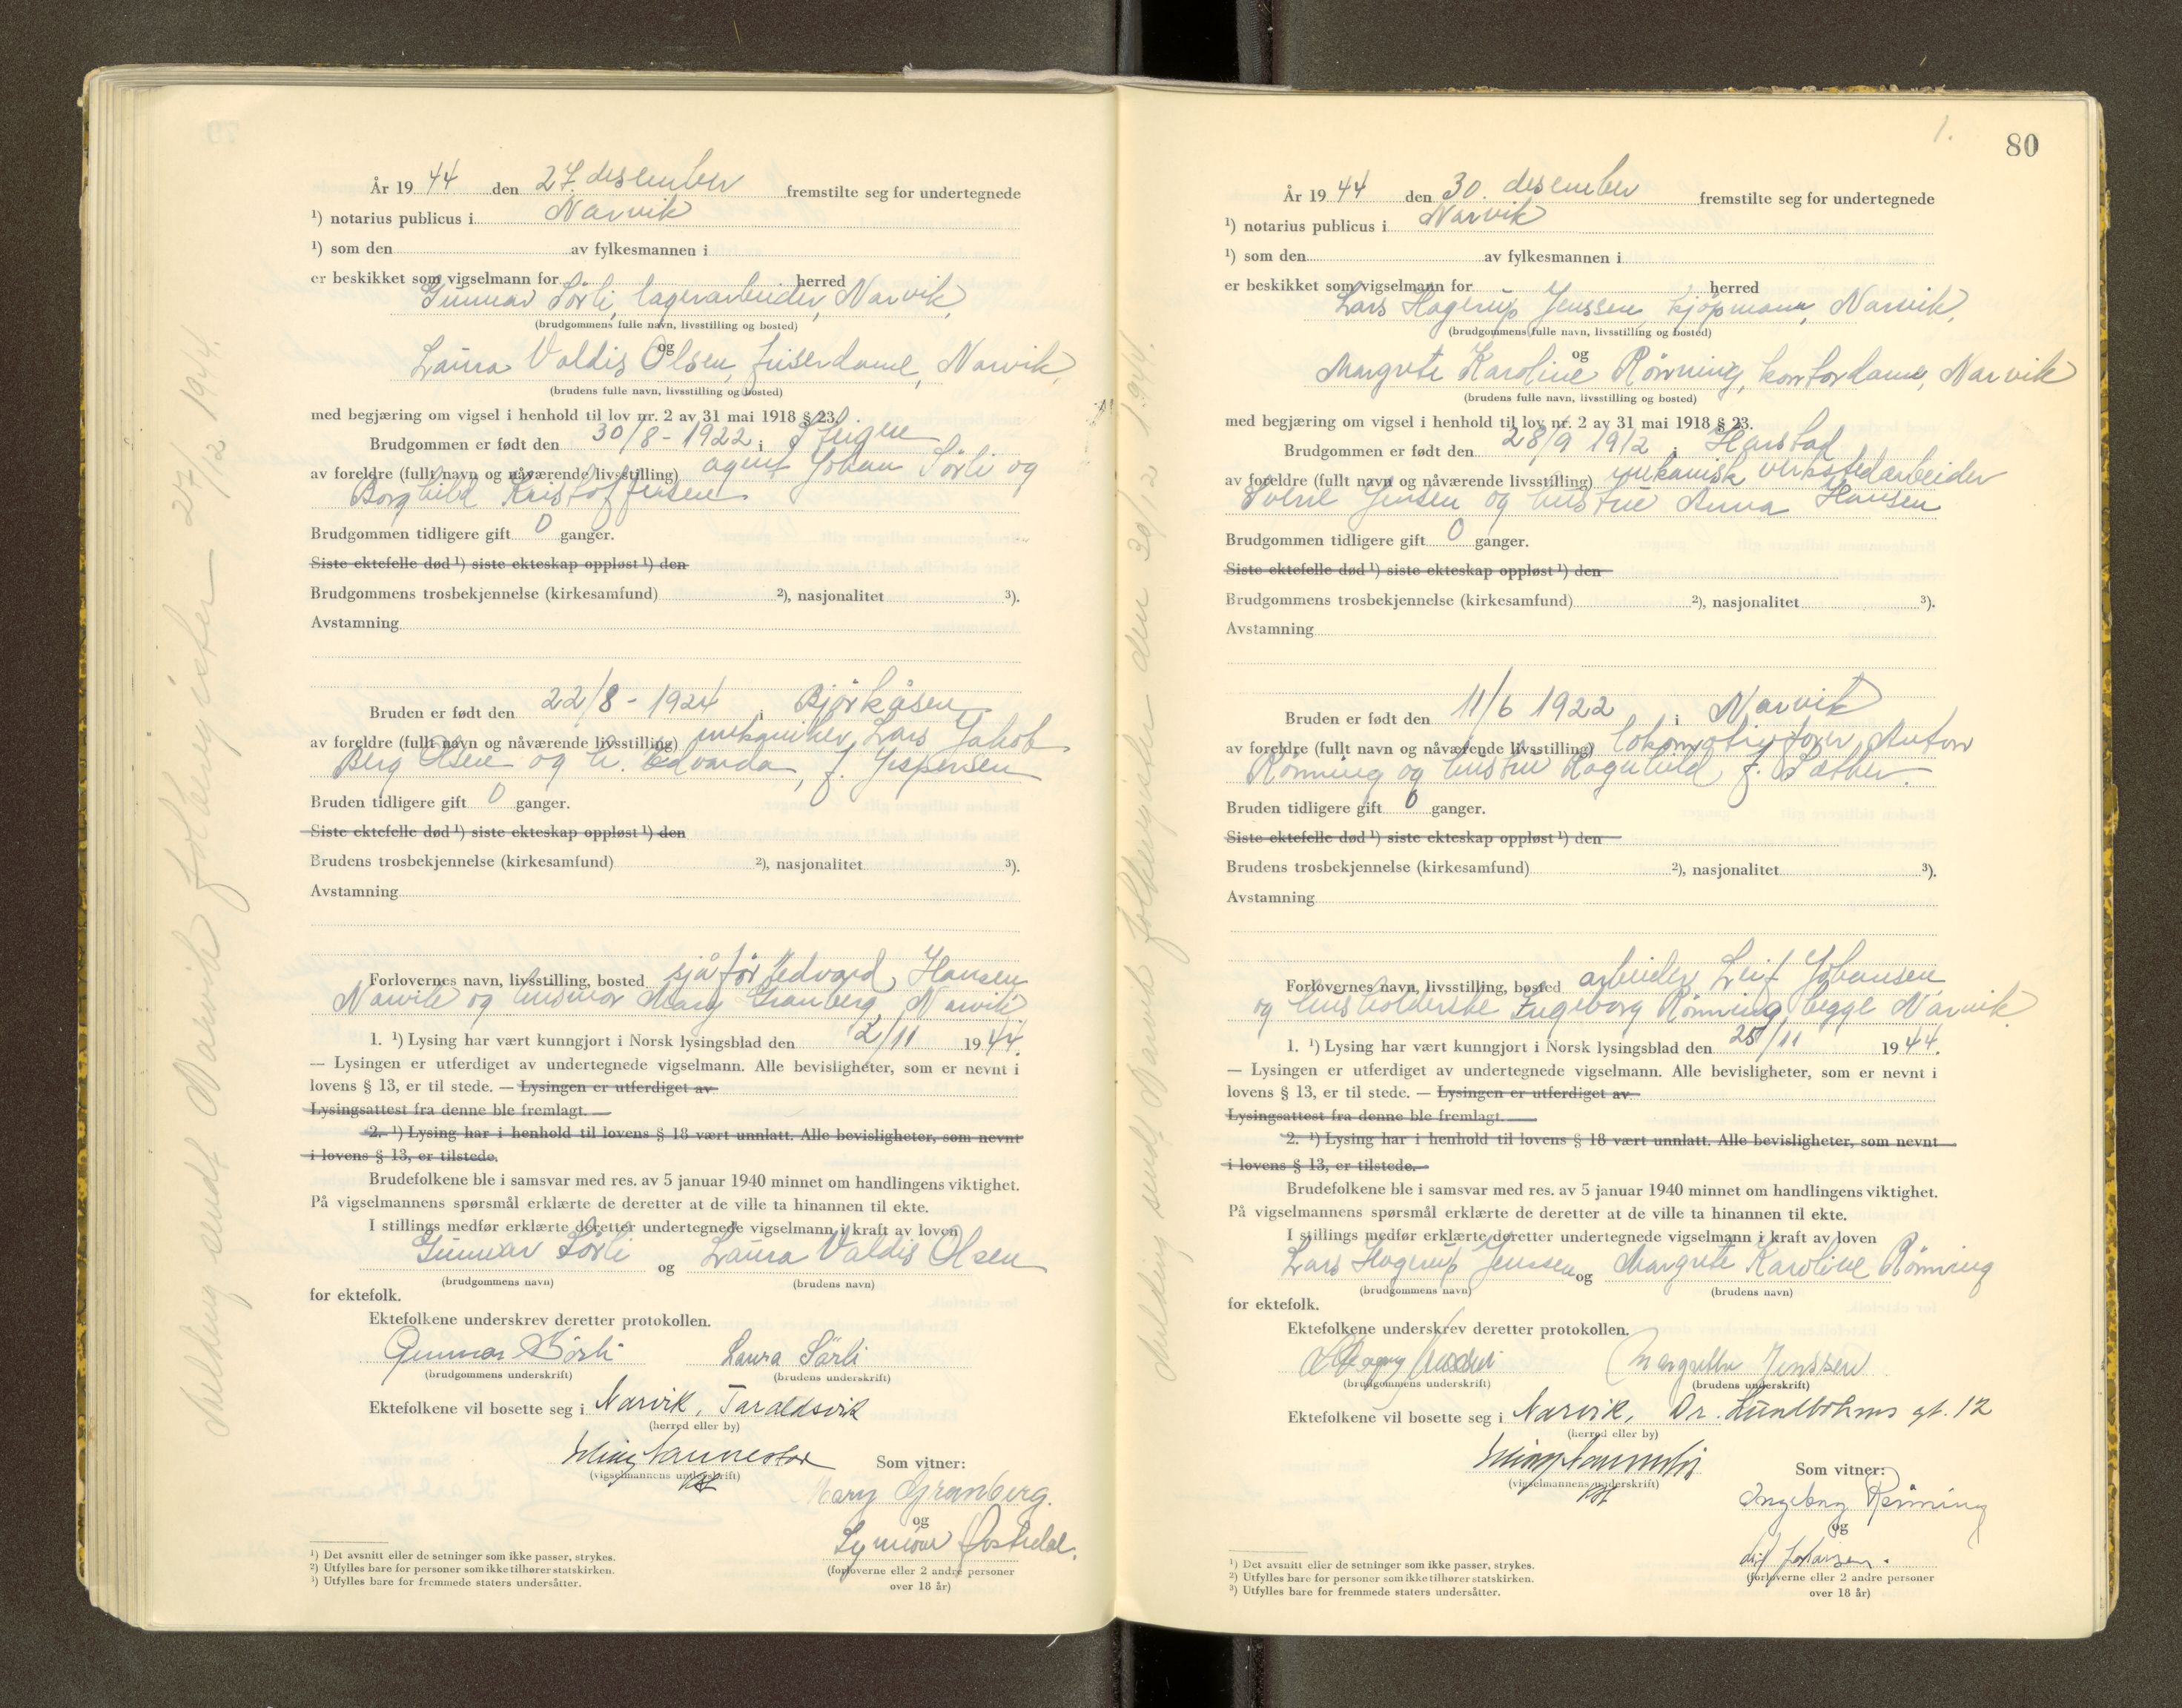 År 19 44 den 27. desember fremstilte seg for undertegnede
¹) notarius publicus i Narvik
¹) som den av fylkesmannen i
er beskikket som vigselmann for herred
Gunnar Sörli, lagerarbeider, Narvik,
(brudgommens fulle navn, livsstilling og bosted)
og
Laura Valdis Olsen, friserdame, Narvik,
(brudens fulle navn, livsstilling og bosted)
med begjæring om vigsel i henhold til lov nr. 2 av 31 mai 1918 § 23.
Brudgommen er født den 30/8 - 1922 i Steigen
av foreldre (fullt navn og nåværende livsstilling) agent Johan Sörli og
Borghild Kristoffersen
Brudgommen tidligere gift 0 ganger.
Siste ektefelle død ¹) siste ekteskap oppløst ¹) den
Brudgommens trosbekjennelse (kirkesamfund) ²), nasjonalitet ³).
Avstamning
Bruden er født den 22/8 - 1924 i Bjørkåsen
av foreldre (fullt navn og nåværende livsstilling) mekaniker Lars Jakob
Berg Olsen og h. Edvarda, f. Jespersen
Bruden tidligere gift 0 ganger.
Siste ektefelle død ¹) siste ekteskap oppløst ¹) den
Brudens trosbekjennelse (kirkesamfund) ²), nasjonalitet ³).
Avstamning
Forlovernes navn, livsstilling, bosted sjåför Edvard Hansen
Narvik og husmor Mary Granberg, Narvik
1. ¹) Lysing har vært kunngjort i Norsk lysingsblad den 2/11 19 44.
— Lysingen er utferdiget av undertegnede vigselmann. Alle bevisligheter, som er nevnt i
lovens § 13, er til stede. — Lysingen er utferdiget av
Lysingsattest fra denne ble fremlagt.
2. ¹) Lysing har i henhold til lovens § 18 vært unnlatt. Alle bevisligheter, som nevnt
i lovens § 13, er tilstede.
Brudefolkene ble i samsvar med res. av 5 januar 1940 minnet om handlingens viktighet.
På vigselmannens spørsmål erklærte de deretter at de ville ta hinannen til ekte.
I stillings medfør erklærte deretter undertegnede vigselmann i kraft av loven
Gunnar Sörli og Laura Valdis Olsen
(brudgommens navn) (brudens navn)
for ektefolk.
Ektefolkene underskrev deretter protokollen.
Gunnar Sörli Laura Sörli
(brudgommens underskrift) (brudens underskrift)
Ektefolkene vil bosette seg i Narvik, Taraldsvik
(herred eller by)
(vigselmannens underskrift)
Som vitner:
Mary Granberg.
og
(forloverne eller 2 andre personer
over 18 år)
¹) Det avsnitt eller de setninger som ikke passer, strykes.
²) Utfylles bare for personer som ikke tilhører statskirken.
³) Utfylles bare for fremmede staters undersåtter.
Melding sendt Narvik folkeregister 27/12 1944.
1.
80
År 19 44 den 30. desember fremstilte seg for undertegnede
¹) notarius publicus i Narvik
¹) som den av fylkesmannen i
er beskikket som vigselmann for herred
Lars Hagerup Jenssen, kjøpmann, Narvik,
(brudgommens fulle navn, livsstilling og bosted)
og
Margrete Karoline Rønning, kontordame, Narvik
(brudens fulle navn, livsstilling og bosted)
med begjæring om vigsel i henhold til lov nr. 2 av 31 mai 1918 § 23.
Brudgommen er født den 28/9 1912 i Harstad
av foreldre (fullt navn og nåværende livsstilling) mekanisk verkstedarbeider
Sverre Jensen og hustru Anna Hansen
Brudgommen tidligere gift 0 ganger.
Siste ektefelle død ¹) siste ekteskap oppløst ¹) den
Brudgommens trosbekjennelse (kirkesamfund) ²), nasjonalitet ³).
Avstamning
Bruden er født den 11/6 1922 i Narvik
av foreldre (fullt navn og nåværende livsstilling) lokomotivfører Anton
Rønning og hustru Ragnhild f. Sæther.
Bruden tidligere gift 0 ganger.
Siste ektefelle død ¹) siste ekteskap oppløst ¹) den
Brudens trosbekjennelse (kirkesamfund) ²), nasjonalitet ³).
Avstamning
Forlovernes navn, livsstilling, bosted arbeider Leif Johansen,
og husholderske Ingeborg Rønning, begge Narvik
1. ¹) Lysing har vært kunngjort i Norsk lysingsblad den 25/11 19 44.
— Lysingen er utferdiget av undertegnede vigselmann. Alle bevisligheter, som er nevnt i
lovens § 13, er til stede. — Lysingen er utferdiget av
Lysingsattest fra denne ble fremlagt.
2. ¹) Lysing har i henhold til lovens § 18 vært unnlatt. Alle bevisligheter, som nevnt
i lovens § 13, er tilstede.
Brudefolkene ble i samsvar med res. av 5 januar 1940 minnet om handlingens viktighet.
På vigselmannens spørsmål erklærte de deretter at de ville ta hinannen til ekte.
I stillings medfør erklærte deretter undertegnede vigselmann i kraft av loven
Lars Hagerup Jenssen og Margrete Karoline Rønning
(brudgommens navn) (brudens navn)
for ektefolk.
Ektefolkene underskrev deretter protokollen.
Margrethe Jenssen
(brudgommens underskrift) (brudens underskrift)
Ektefolkene vil bosette seg i Narvik, Dr. Lundbohms gt. 12
(herred eller by)
(vigselmannens underskrift)
Som vitner:
Ingeborg Rønning
og
Leif Johansen.
(forloverne eller 2 andre personer
over 18 år)
¹) Det avsnitt eller de setninger som ikke passer, strykes.
²) Utfylles bare for personer som ikke tilhører statskirken.
³) Utfylles bare for fremmede staters undersåtter.
Melding sendt Narvik folkeregister den 30/12 1944.